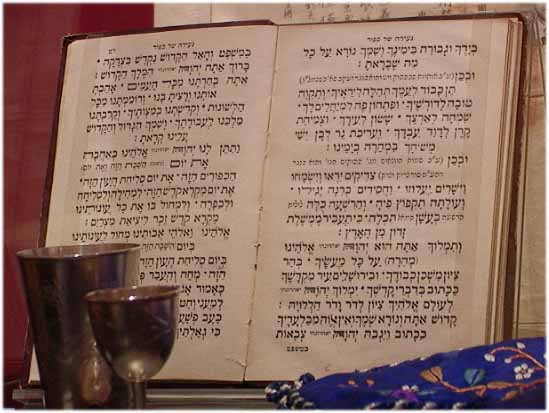 נעילה של כפור
בידך וגבורה בימינך ושמך נורא על כל
מה שבראת:
ובכן
תן כבוד לעמך תהלה ליראיך ותקוה
טובה לדורשיך ופתחון פה למיחלים לך
שמחה לארצך ששון לעירך וצמיחת
קרן לדוד עבדך ועריכת נר לבן ישי
משיחך במהרה בימינו:
ובכן
צדיקים יראו וישמחו
וישרים יעלוזו וחסידים ברנה יגילו
ועולתה תקפוץ פיה והרשעה כלה
בעשן תכלה כי תעביר ממשלת
זדון מן הארץ:
ותמלוך אתה הוא יהוה אלהינו
(מהרה) על כל מעשיך בהר
ציון משכן כבודך ובירושלים עיר מקדשך
ככתוב בדברי קדשך ימלוך יהוה
לעולם אלהיך ציון לדר ודר הללויה:
קדוש אתה ונורא שמך ואין אלוה מבלעדיך
ככתוב ויגבה יהוה צבאות
במשפט
נעילה של כפור
במשפט והאל הקדוש נקדש בצדקה
ברוך אתה יהוה המלך הקדוש:
אתה בחרתנו מכל העמים אהבת
אותנו ורצית בנו ורוממתנו מכל
הלשונות וקדשתנו במצותיך וקרבתנו
מלכנו לעבודתך ושמך הגדול והקדוש
עלינו קראת:
ותתן לנו יהוה אלהינו באהבה
את יום
הכפורים הזה את יום סליחת העון הזה
את יום מקרא קדש הזה למחילה ולסליחה
ולכפרה ולמחול בו את כל עונותינו
מקרא קדש זכר ליציאת מצרים:
אלהינו ואלהי אבותינו מחול לעונותינו
ביום
ביום סליחת העון הזה
הזה מחה והעבר
כאמור
למעני
כעב פשעיך
כי גאלתיך